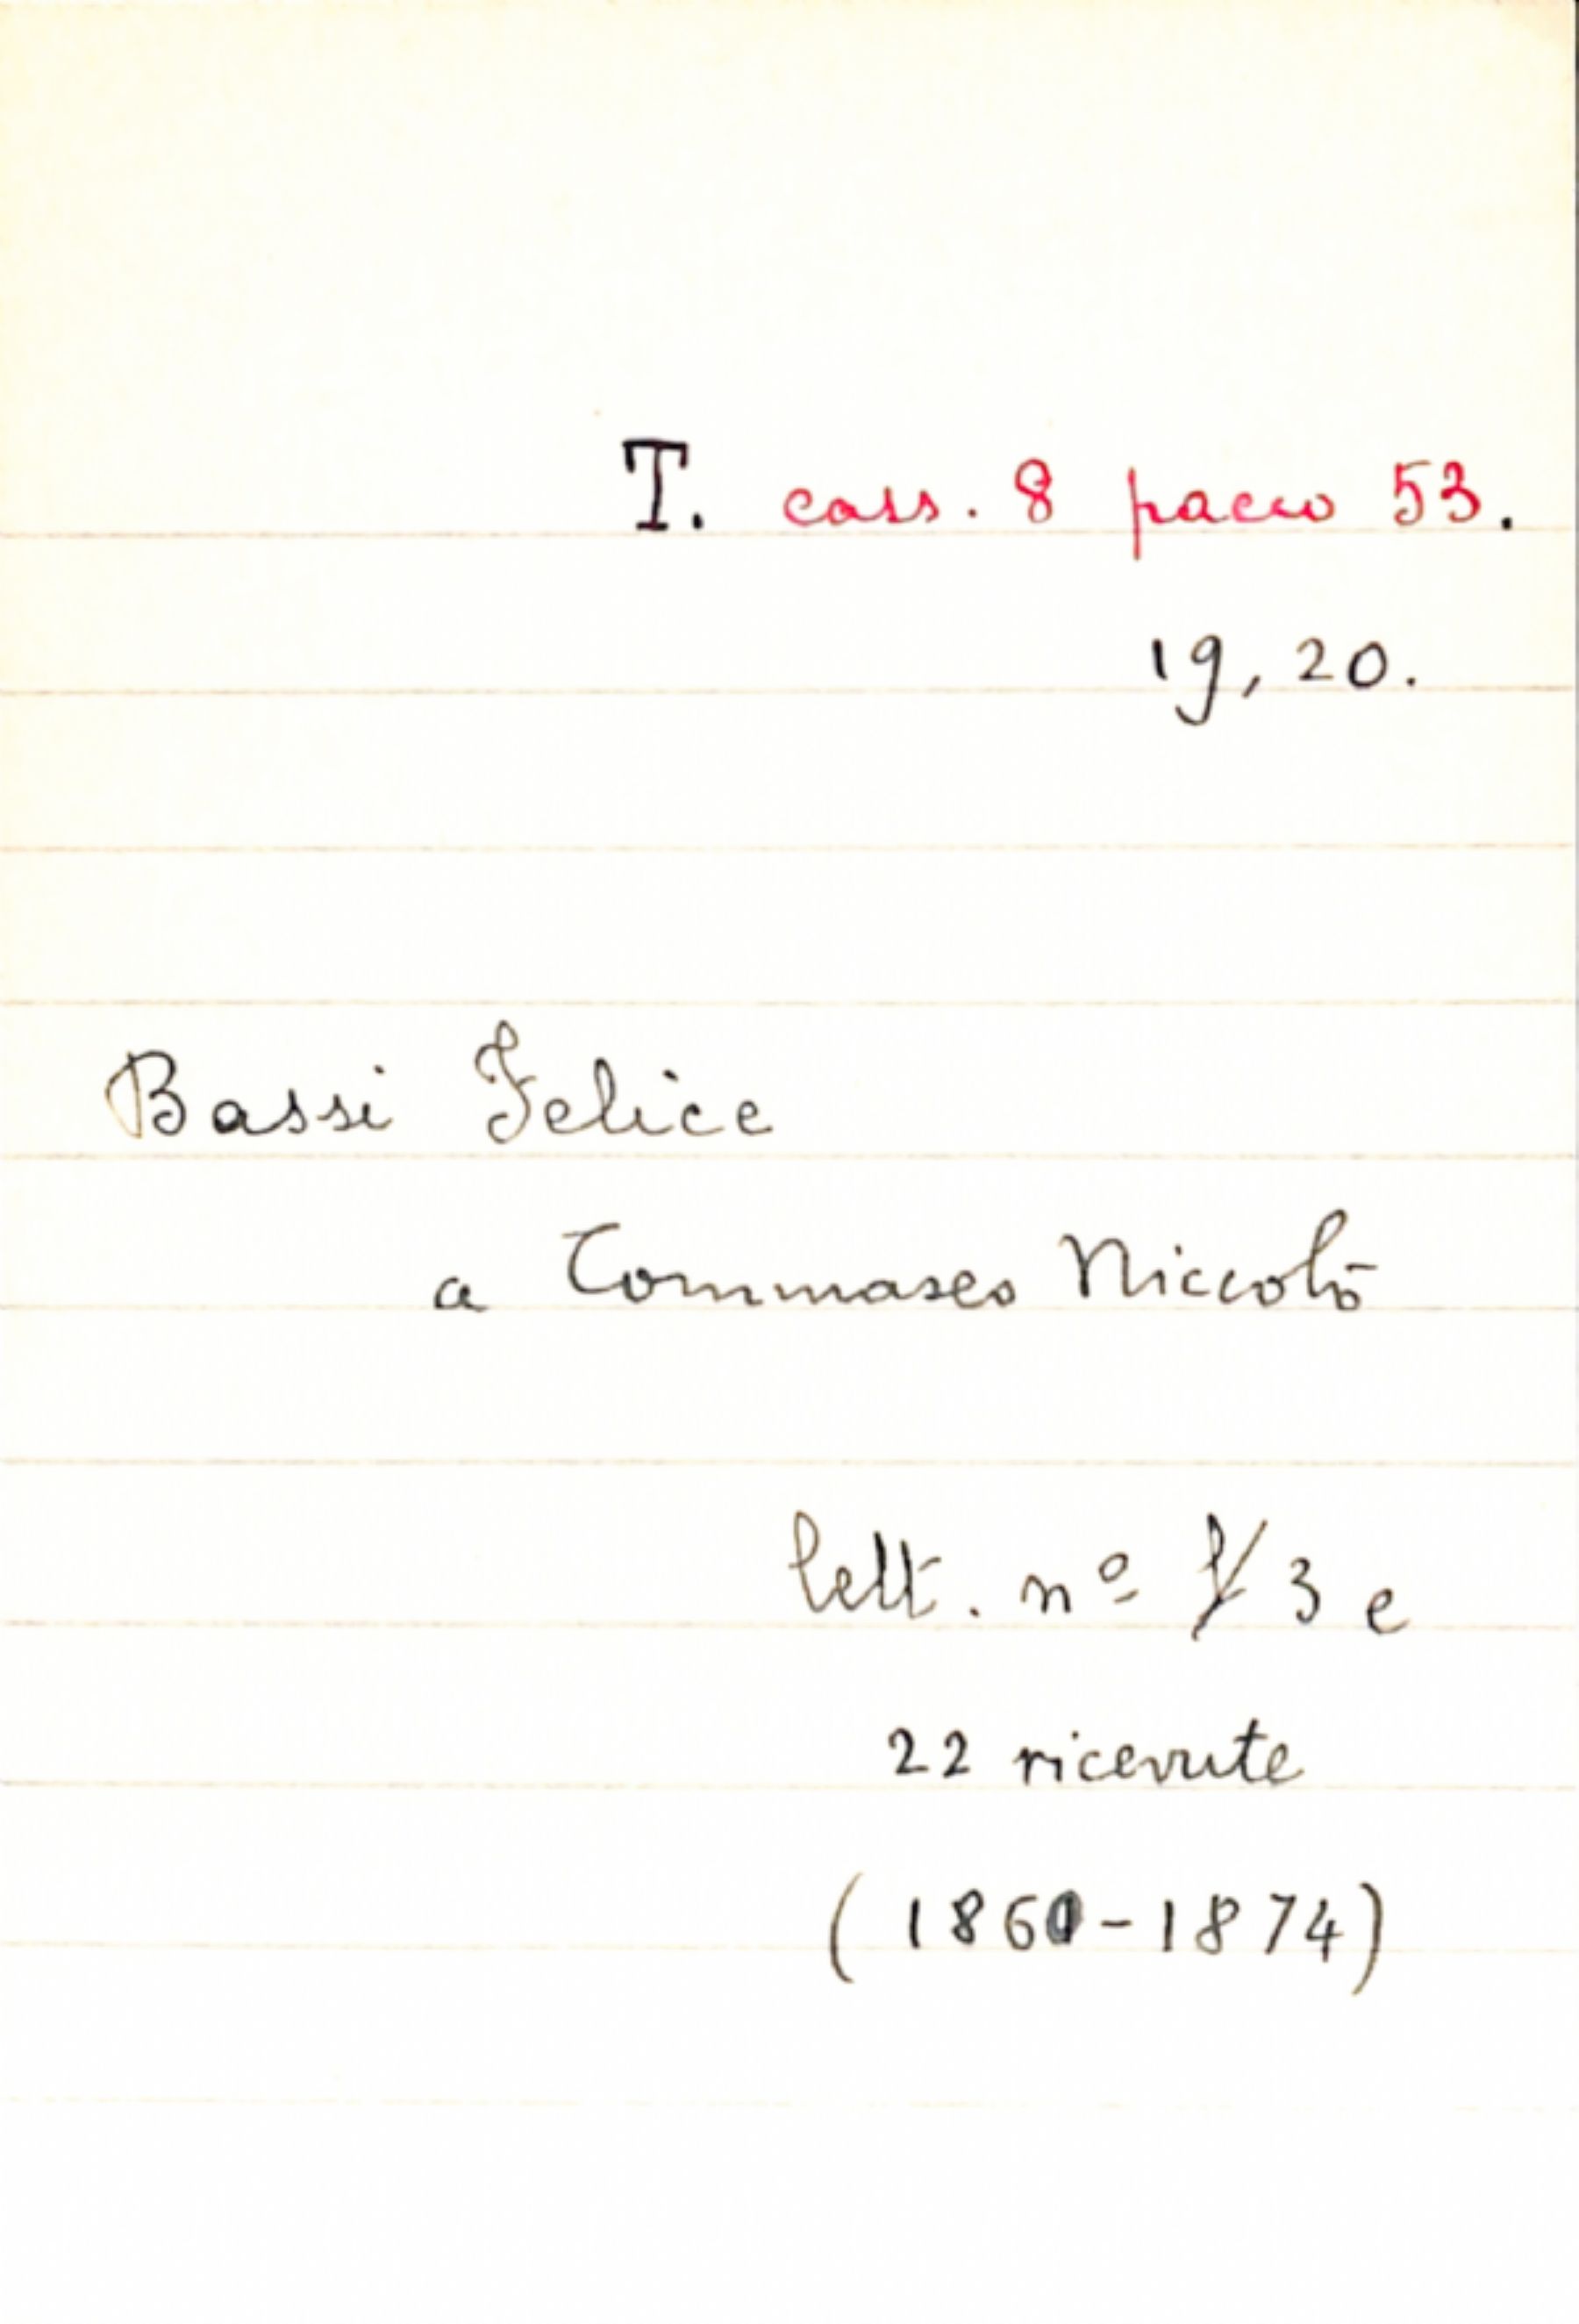 T. cass. 8 pacco 53.
19, 20.
Bassi Felice
a Tommaseo Niccolò
lett. nº 3 e
22 ricevute
(1860-1874)